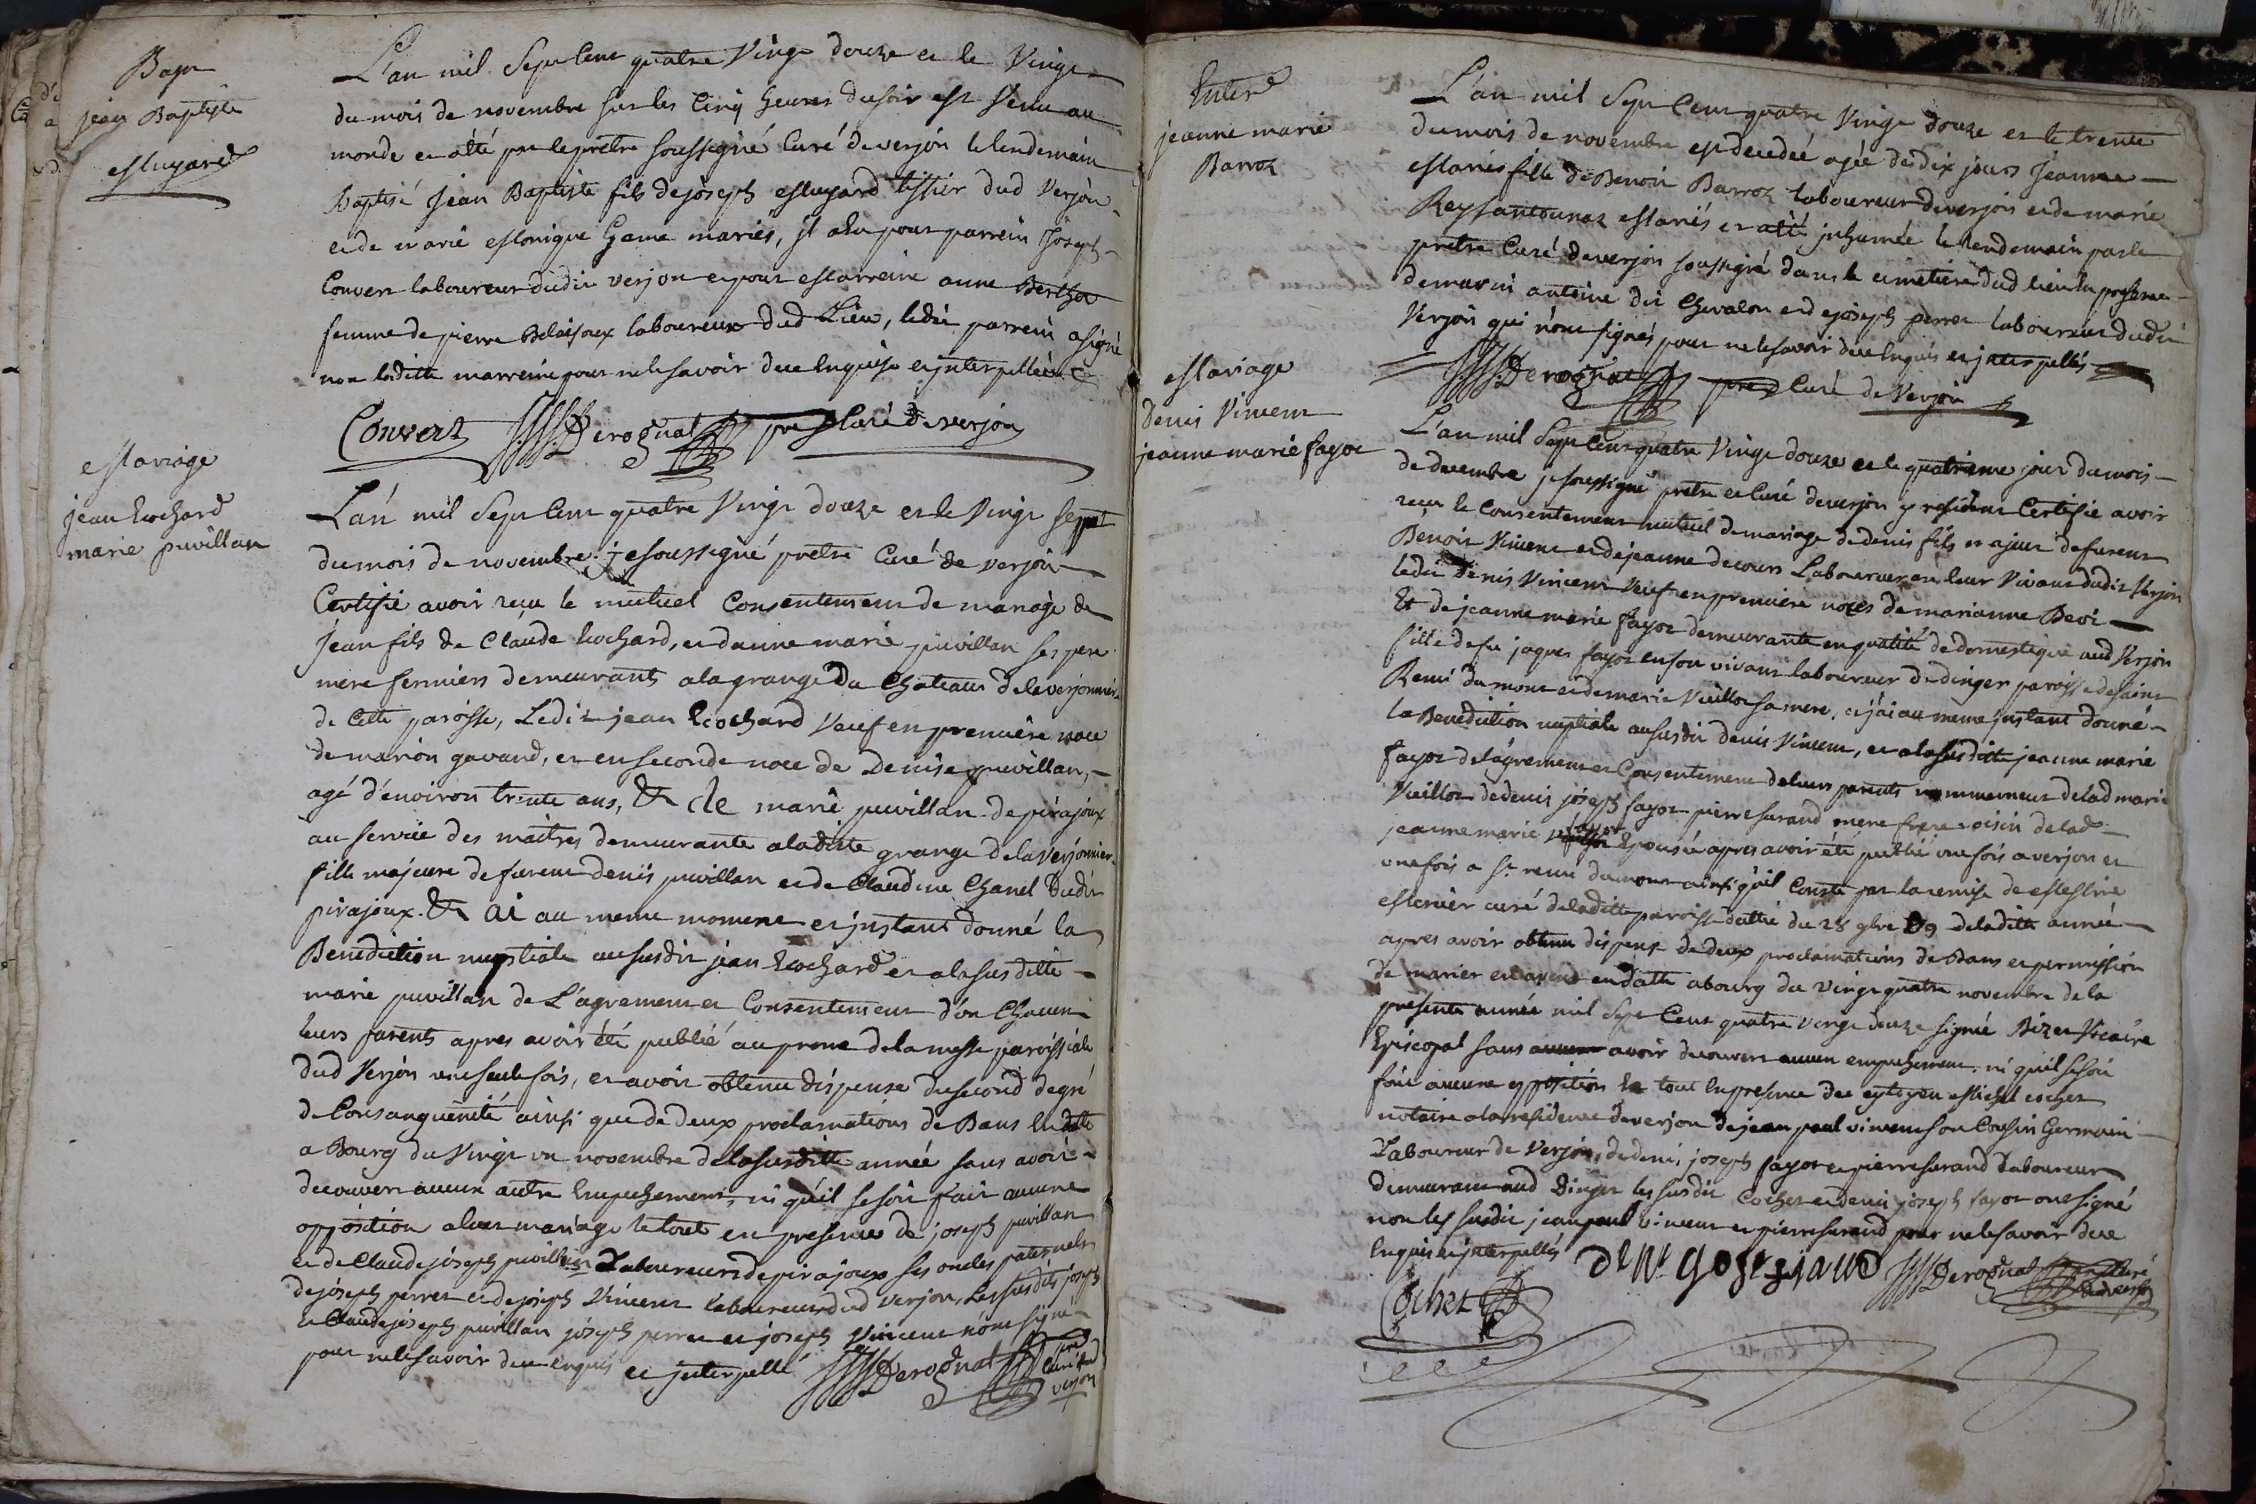 Bapt
jean Baptiste
Muyard
L'an mil Sept Cent quatre Vingt douze et le Vingt
du mois de novembre sur les Cinq heures du soir est Venu au
monde et a été par le prêtre soussigné Curé de verjon le lendemain
Baptisé Jean Baptiste fils de joseph Muyard tissier dud Verjon
et de marie Monique Game mariés, il a eu pour parrein Joseph
Convert laboureur dudit verjon et pour Marreine anne Berthet
femme de pierre Belaisoux laboureur dud Lieu, ledit parrein a signé
non laditte marreine pour ne le savoir de ce Enquise et interpellée
Convert JJJDerognat pre Curé de verjon
Mariage
jean Cochard
marie puvillan
L'an mil Sept Cent quatre Vingt douze et le Vingt Sept
du mois de novembre je soussigné pretre Curé de verjon
Certifie avoir reçu le mutuel Consentement de mariage de
jean fils de Claude Cochard, et d'anne marie puvillan ses pere
mere fermiers demeurants a la grange du Chateau de la verjonniere
de Cette paroisse, Ledit jean Cochard Veuf en premiere noce
de marion gavand, et en seconde noce de Denise puvillan,
agé d'environ trente ans, & de marie puvillan de pirajoux
au service des maîtres demeurante a laditte grange de la verjonnier
fille majeure de furent denis puvillan et de Claudine Chanel dudit
pirajoux. & ai au meme moment et instant donné la
Benediction nuptiale au susdit jean Cochard et a la susditte
marie puvillan de L'agrement et Consentement d'un Chacun
leurs parents apres avoir été publié au prone de la messe paroissiale
dud Verjon une seule fois, et avoir obtenu dispense du second degré
de Consanguenité ainsi que de deux proclamations de Bans En datte
a Bourg du Vingt un novembre de la susditte année sans avoir
decouvert aucun autre Empechement, ni qu'il se soit fait aucune
opposition a leur mariage le tout en presence de joseph puvillan
et de Claude joseph puvillan Laboureurs de pirajoux ses oncles paternels
de joseph perret et de joseph Vincent laboureurs dud verjon, Les susdits joseph
et Claude joseph puvillan joseph perret et joseph Vincent n'ont signé
pour ne le savoir de ce enquis et interpellé JJJDerognat pre Curé dud verjon
Enterr
jeanne marie
Barroz
L'an mil Sept Cent quatre Vingt douze et le trente
du mois de novembre est decedée agée de dix jours Jeanne
Marie fille de Benoit Barroz laboureur de verjon et de marie
Reysantounaz Mariés et a été inhumée le lendemain par le
pretre Curé de verjon soussigné dans le cimetiere dud lieu en presence
de marin antoine dit Chevalon et de joseph perret laboureur dudit
Verjon qui n'ont signés pour ne le savoir de ce Enquis et interpellés
JJJDerognat pre Curé de Verjon
Mariage
Denis Vincent
jeanne marie fayoz
L'an mil Sept Cent quatre Vingt douze et le quatrieme jour du mois
de decembre je soussigné pretre et Curé de verjon y resident Certifie avoir
reçu le Consentement mutuel de mariage de denis fils et ajeur de furent
Benoit Vincent et de jeanne decours Laboureur en leur Vivant dudit Verjon
ledit Denis Vincent Veuf en premiere noces de marianne Devi
Et de jeanne marie fayoz demeurante en qualité de domestique aud Verjon
fille de fu jaques fayoz en son vivant laboureur de dinger paroisse de saint
Remi du mont et de marie Vuilloz sa mere, et j'ai au meme instant donné
la Benediction nuptiale au susdit denis Vincent, et a la susditte jeanne marie
fayoz de l'agrement et Consentement de leurs parents nommement de lad marie
Vuilloz de denis joseph fayoz pierre surand mere frere voisin de lad
jeanne marie fayoz Epousée apres avoir été publié une fois a verjon et
une fois a St remi du mont ainsi qu'il Conste par la remise de Messire
Monier curé de laditte paroisse dattée du 28 9bre de laditte année
apres avoir obtenu dispense de deux proclamations de Bans et permission
de marier en avent en datte a bourg du Vingt quatre novembre de la
presente année mil Sept Cent quatre vingt douze signé Bizet Vicaire
Episcopal sans avoir decouvert aucun empechement, ni qu'il se soit
fait aucune opposition le tout En presence du cytoyen Michel cochet
notaire a la residence de verjon de jean paul vincent son Cousin Germain
Laboureur de Verjon, de denis joseph fayoz et pierre surand Laboureur
demeurant aud Dinger les susdit Cochet et denis joseph fayoz ont signé
non les susdit jean paul vincent et pierre surand pour ne le savoir de ce
Enquis et interpellés
JJJDerognat pre Curé de verjon
Cochet